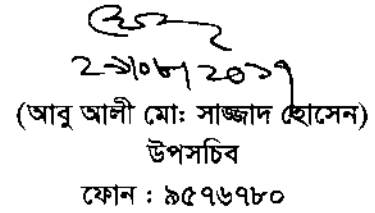 ২৯/০৮/২০১৭
(আবু আলী মোঃ সাজ্জাদ হোসেন)
উপসচিব
ফোন : ৯৫৭৬৭৮০